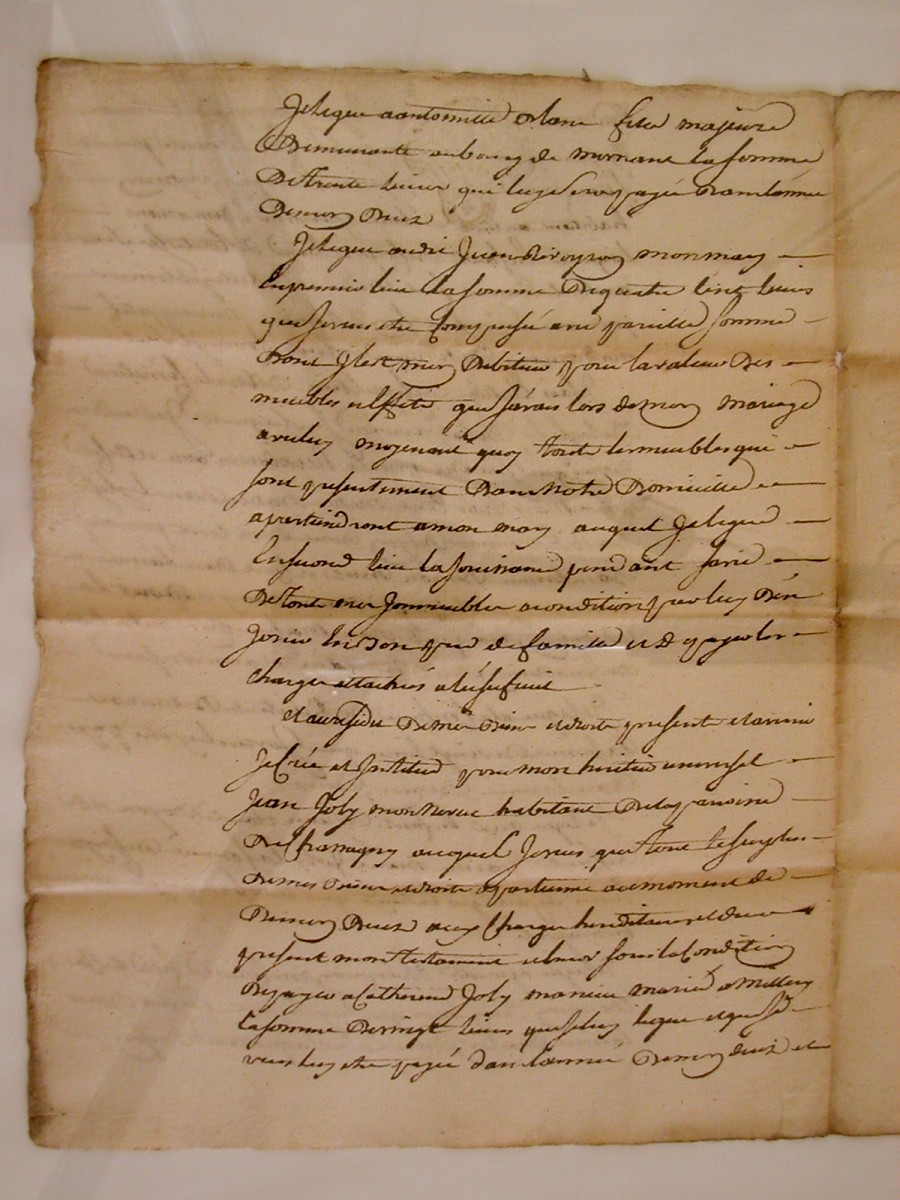 Je legue a antoinette fille majeure
Demeurante au bourg de mornant la somme
De trente livres qui luy sera payée dans lannée
De mon Deces
Je legue audit Jean mon mary
En premier lieu la somme De quatre cent livres
que je veus etre Compensé avec pareille somme
Dont Il est mon Debiteur pour la valeur Des
meubles et effets que j'avais lors de mon mariage
avec luy moyenant quoy touts les meubles qui
sont presentement Dans Notre Domicille
apartiendront a mon mary auquel Je legue
En second lieu la Jouissance pendant sa vie
De touts mes Immeubles a condition par luy D'en
Jouir En bon pere de famille et de payer les
charges attachées a l'usufruit
Et au residu De mes Biens et droits presents et avenir
Je Crée et Institue pour mon heritier universel
Jean Joly mon Neveu habitant De la paroisse
De Chassagny auquel Je veus que tout le surplus
De mes Biens et droits apartienne au moment de
De mon Deces aux Charges hereditaires et du
present mon testament et sous la Condition
De payer a Catherine Joly ma niece mariée a Millery
la somme De vingt livres que je luy legue et que je
veus luy etre payée dans l'année De mon deces et